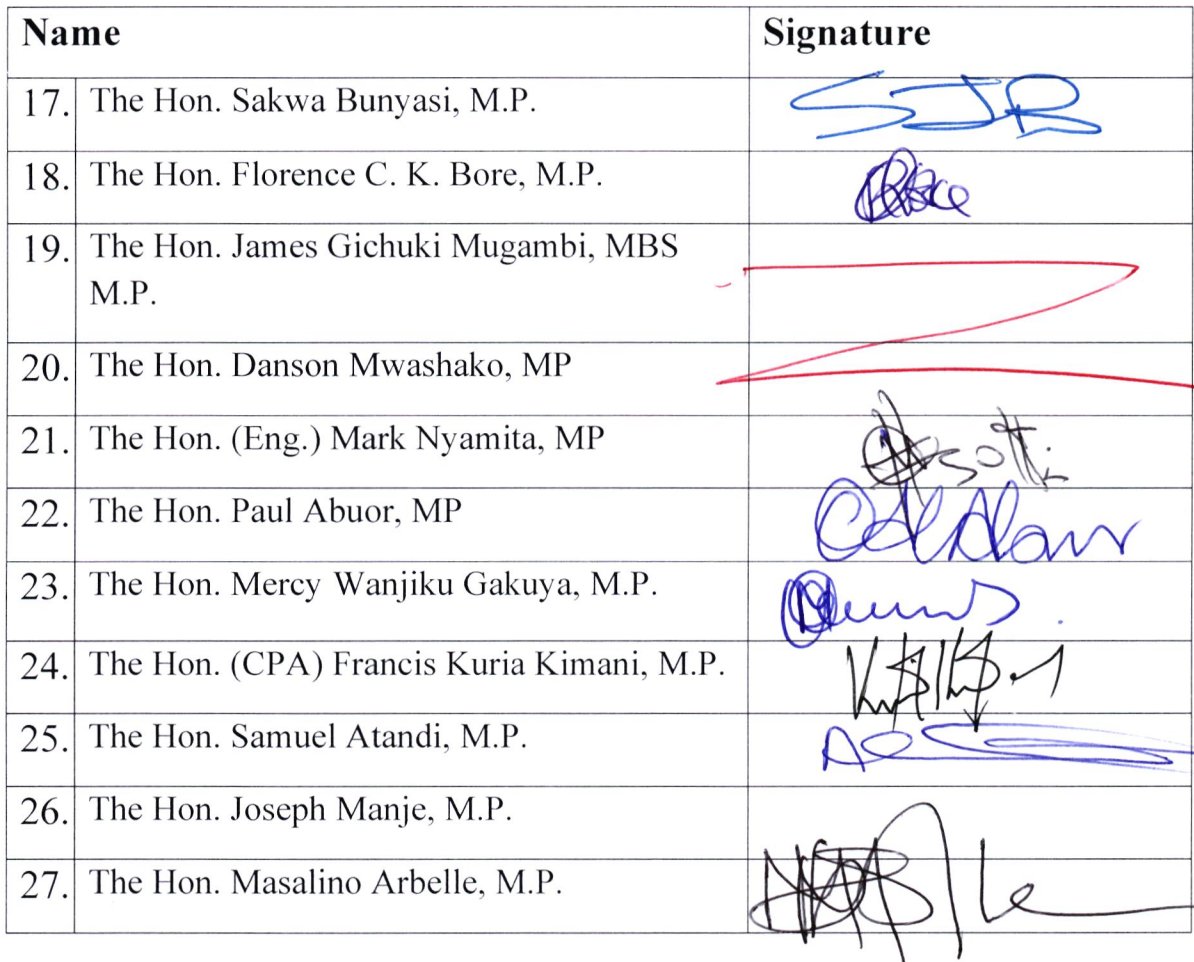 Name Signature
17. The Hon. Sakwa Bunyasi, M.P. SJB
18. The Hon. Florence C. K. Bore, M.P.
19. The Hon. James Gichuki Mugambi, MBS
M.P.
20. The Hon. Danson Mwashako, MP
21. The Hon. (Eng.) Mark Nyamita, MP
22. The Hon. Paul Abuor, MP
23. The Hon. Mercy Wanjiku Gakuya, M.P.
24. The Hon. (CPA) Francis Kuria Kimani, M.P.
25. The Hon. Samuel Atandi, M.P.
26. The Hon. Joseph Manje, M.P.
27. The Hon. Masalino Arbelle, M.P.